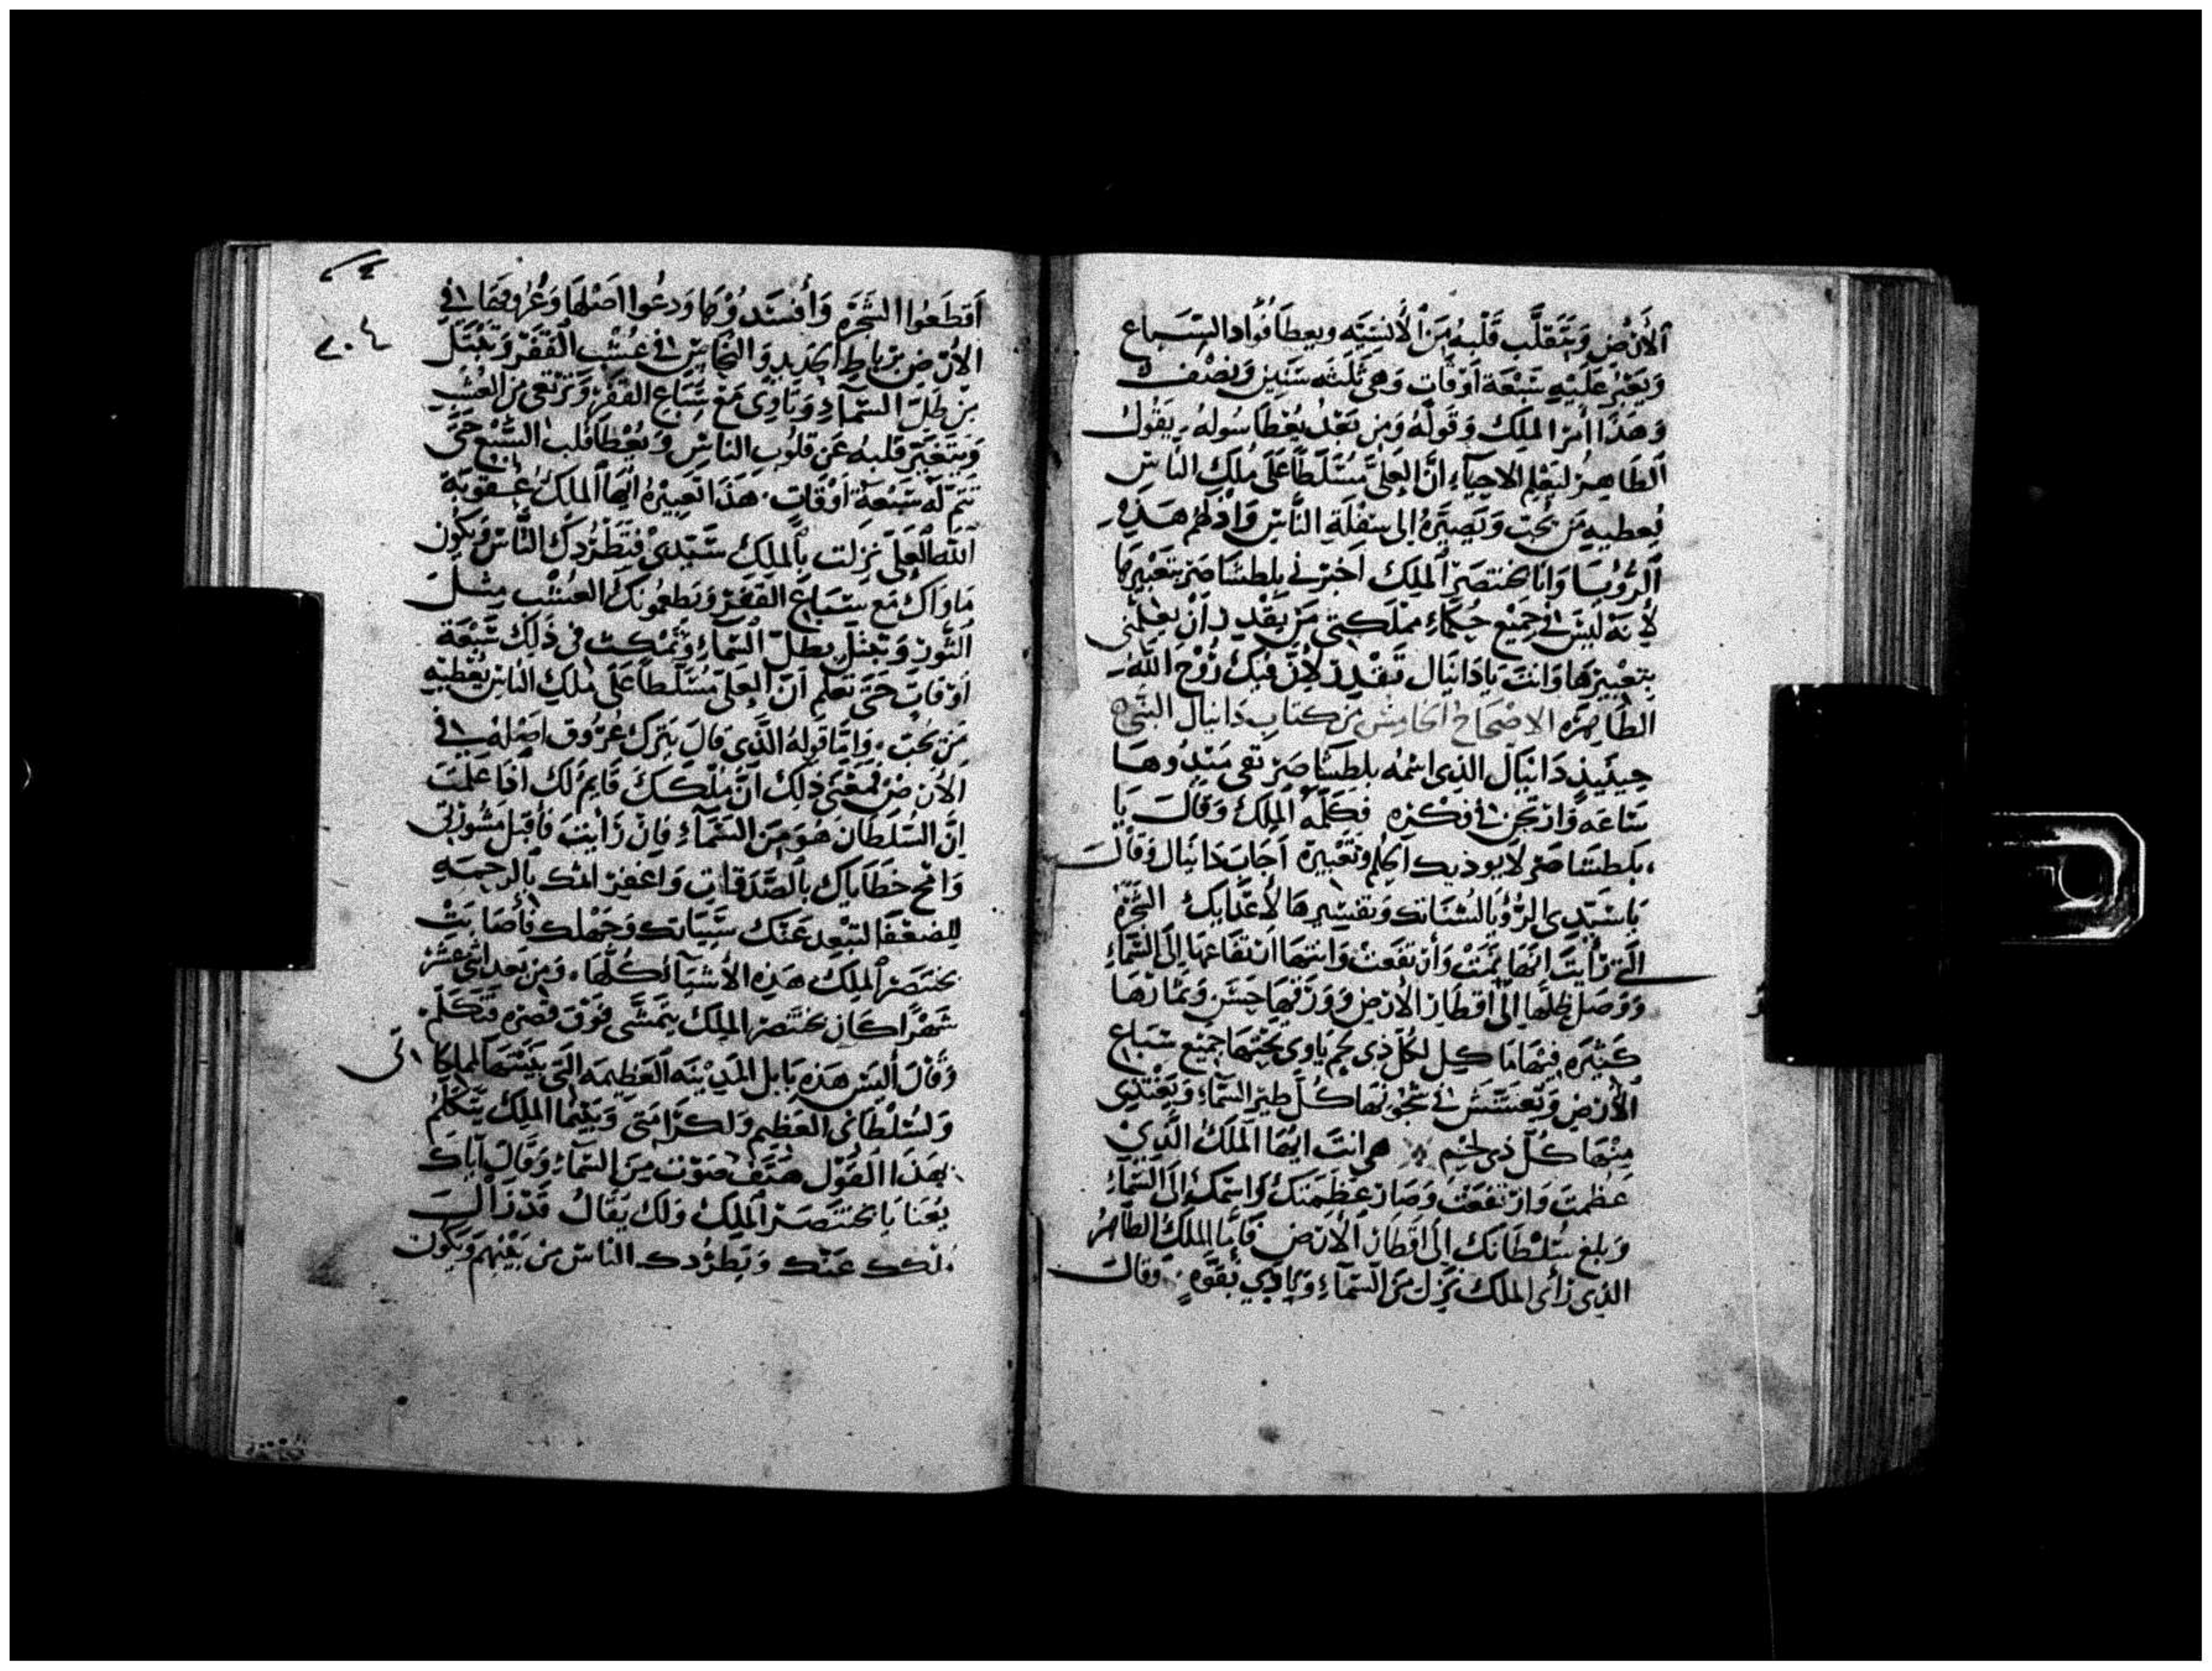 الأرض وَيَتَقلَّب قَلْبهُ مَن الأنسيَّه ويعطا فُواد السّباع
وَيَعْبُر عَلَيْهِ سَبْعَة أوْقَاتٍ وَهيَ ثَلثَه سَنِين وَنصْف
وَهَذا أمر الملك وَقَولَهُ وَمن بَعْد يُعْطَا سُوله يَقُول
الطَاهِرُ ليَعْلم الاحيآء انَّ العَلي مُسَّلَطاً عَلَى مُلك الناسْ
يُعطيه مَن يُحب وَيَصيّرهُ الى سفْلَةِ النَّاس وَادْلهم هَذِه
الرُؤيَا وَانا بختنصَر الملك اَخبرْني بلطشاصَر بتَعْبيرهَا
لأنهَ ليْسَ في جَميْع حُكَمَآء ممْلَكتي مَن يَقْدِر أنْ يعلمني
بتعْبيرهَا وَانتَ يَا دَانيَال تَقْدِر لأنَّ فيكَ رُوْحَ الله
الطَاهِرَه الاصْحَاحُ الخامِسْ مِن كتَابِ دَانيَال النَّبي
حِينَيذٍ دَانيَال الذي اسْمُه بلطشاصَر بقى مَبْدُوهَا
سَاعَه وَارتجن في فِكْرَه فكلّمَه الملكُ وَقَالَ يَا
بَلطشاصَر لا يوذيك الحلم وتَعْبيرَه اَجَابَ دَانيَال وَقَالَ
يَا سَيّدي الرُؤيَا لشُنَاتك وَتفسْيرهَا لأعْدَايكَ الشجَرَة
الَّتي رَأيْتَ انّهَا نَمَتْ وَأرْتفَعَتْ وَانتهَا ارْتفَاعهَا إلَى السَّمَآءِ
وَوَصَل ظلهَا الىَ أقطَار الارْض وَوَرَقهَا حَسَن وَثمارهَا
كَثيْرَه فيْهَا مَاكل لكُلّ ذي لحْم يَاوي تَحْتهَا جَميْع سبَاع
الأرْض وَيُعَشّش في غُصُونهَا كُلّ طير السَّمَآءِ وَيَغْتَذي
مِنْهَا كُلّ ذي لحْم هي انتَ ايُّهَا الملكُ الَّذيْ
عَظُمتَ وَارتفعْت وَصَار عَظمَتكَ وَاسْمكَ إلَى السَّمَآء
وَبلغ سُلْطَانكَ إلَى أقطَار الأرْض فَأمّا الملكُ الطَاهرُ
الذي رَأى الملك نَزل مَنَ السَّمَآءِ وَيُنادي بقوَّه وَقال
اَقطَعُوا الشجَرَه وَأفسَدُوْهَا وَدعُوا اصْلهَا وَعُرُوقهَا في
الأرْضِ برباط الحَديدِ وَالنحَاسْ في عُشب القفَرْ وَيَبْتَل
مِنْ طَلّ السَّمَآءِ وَيَاوي مَع سِّبَاع القفَرْ وَيَرْتعى من العُشْب
وَيتغيَّر قلبه عَن قلُوب الناسْ وَيُعْطَا قلب السَّبُع حَتَّى
تتم لَه سَبعَة أوْقاتٍ هَذا تَعبيرهُ ايُّها الملكُ عُقوبَة
الله العَليّ نزلت بالمَلِكُ سَيّدي فَتَطرُدكَ النَّاسْ وَيَكون
مَاوَاكَ مَع سِّبَاع القفَرْ وَيطعُمونكَ العُشْب مثلَ
الثور وَتبْتلّ بطلّ السَّمَآء وَتُمْكث في ذَلكَ سَبْعَة
أوْقَاتٍ حَتَّى تَعلم ان العلي مُسَلَّطاً عَلَى مُلك الناسْ يُعْطيه
مَن يُحب وَامَّا قولهُ الَّذي قالَ يَترك عُرُوق اصْلهُ في
الأرْض فَمَعْنَى ذلِكَ انَّ مُلْكَكَ قَايمٌ لَكَ اذا عَلمتَ
انّ السُلطَان هُوَ مِن السَّمآءِ فان رَأيْتَ فَأقبل مَشُورَتي
وَامْح خطَاياك بالصَّدَقاتِ وَاغفر اثمك بالرحمَه
للضعَفآ لتبْعِد عَنْك سَيّياتك وَجَهْلك فأصَابتْ
بختنصَر الملكُ هَذهِ الأشيآء كُلّهَا وَمن بعد اثنى عشر
شَهْرًا كان بختنصَر الملكُ يَتمَشَّى فوَق قصْره فَتَكلّم
وَقَالَ أليسْ هَذِه بَابل المديْنه العَظيمَه الَّتي بَنيْتهَا لملكا
وَلسُلطَاني العَظيم وَلكرَامتي وَبَيْنما الملِكُ يتكلَّمُ
بهَذا القَوْل هَتف صَوْت مِن السَّمآء وَقَال اياك
يُعنا يَا بختنصَر الملِكُ وَلكَ يقالُ قَدْ زَالَ
مُلكك عَنك وَيَطرُدك الناسْ مِن بَيْنهم وَيَكون